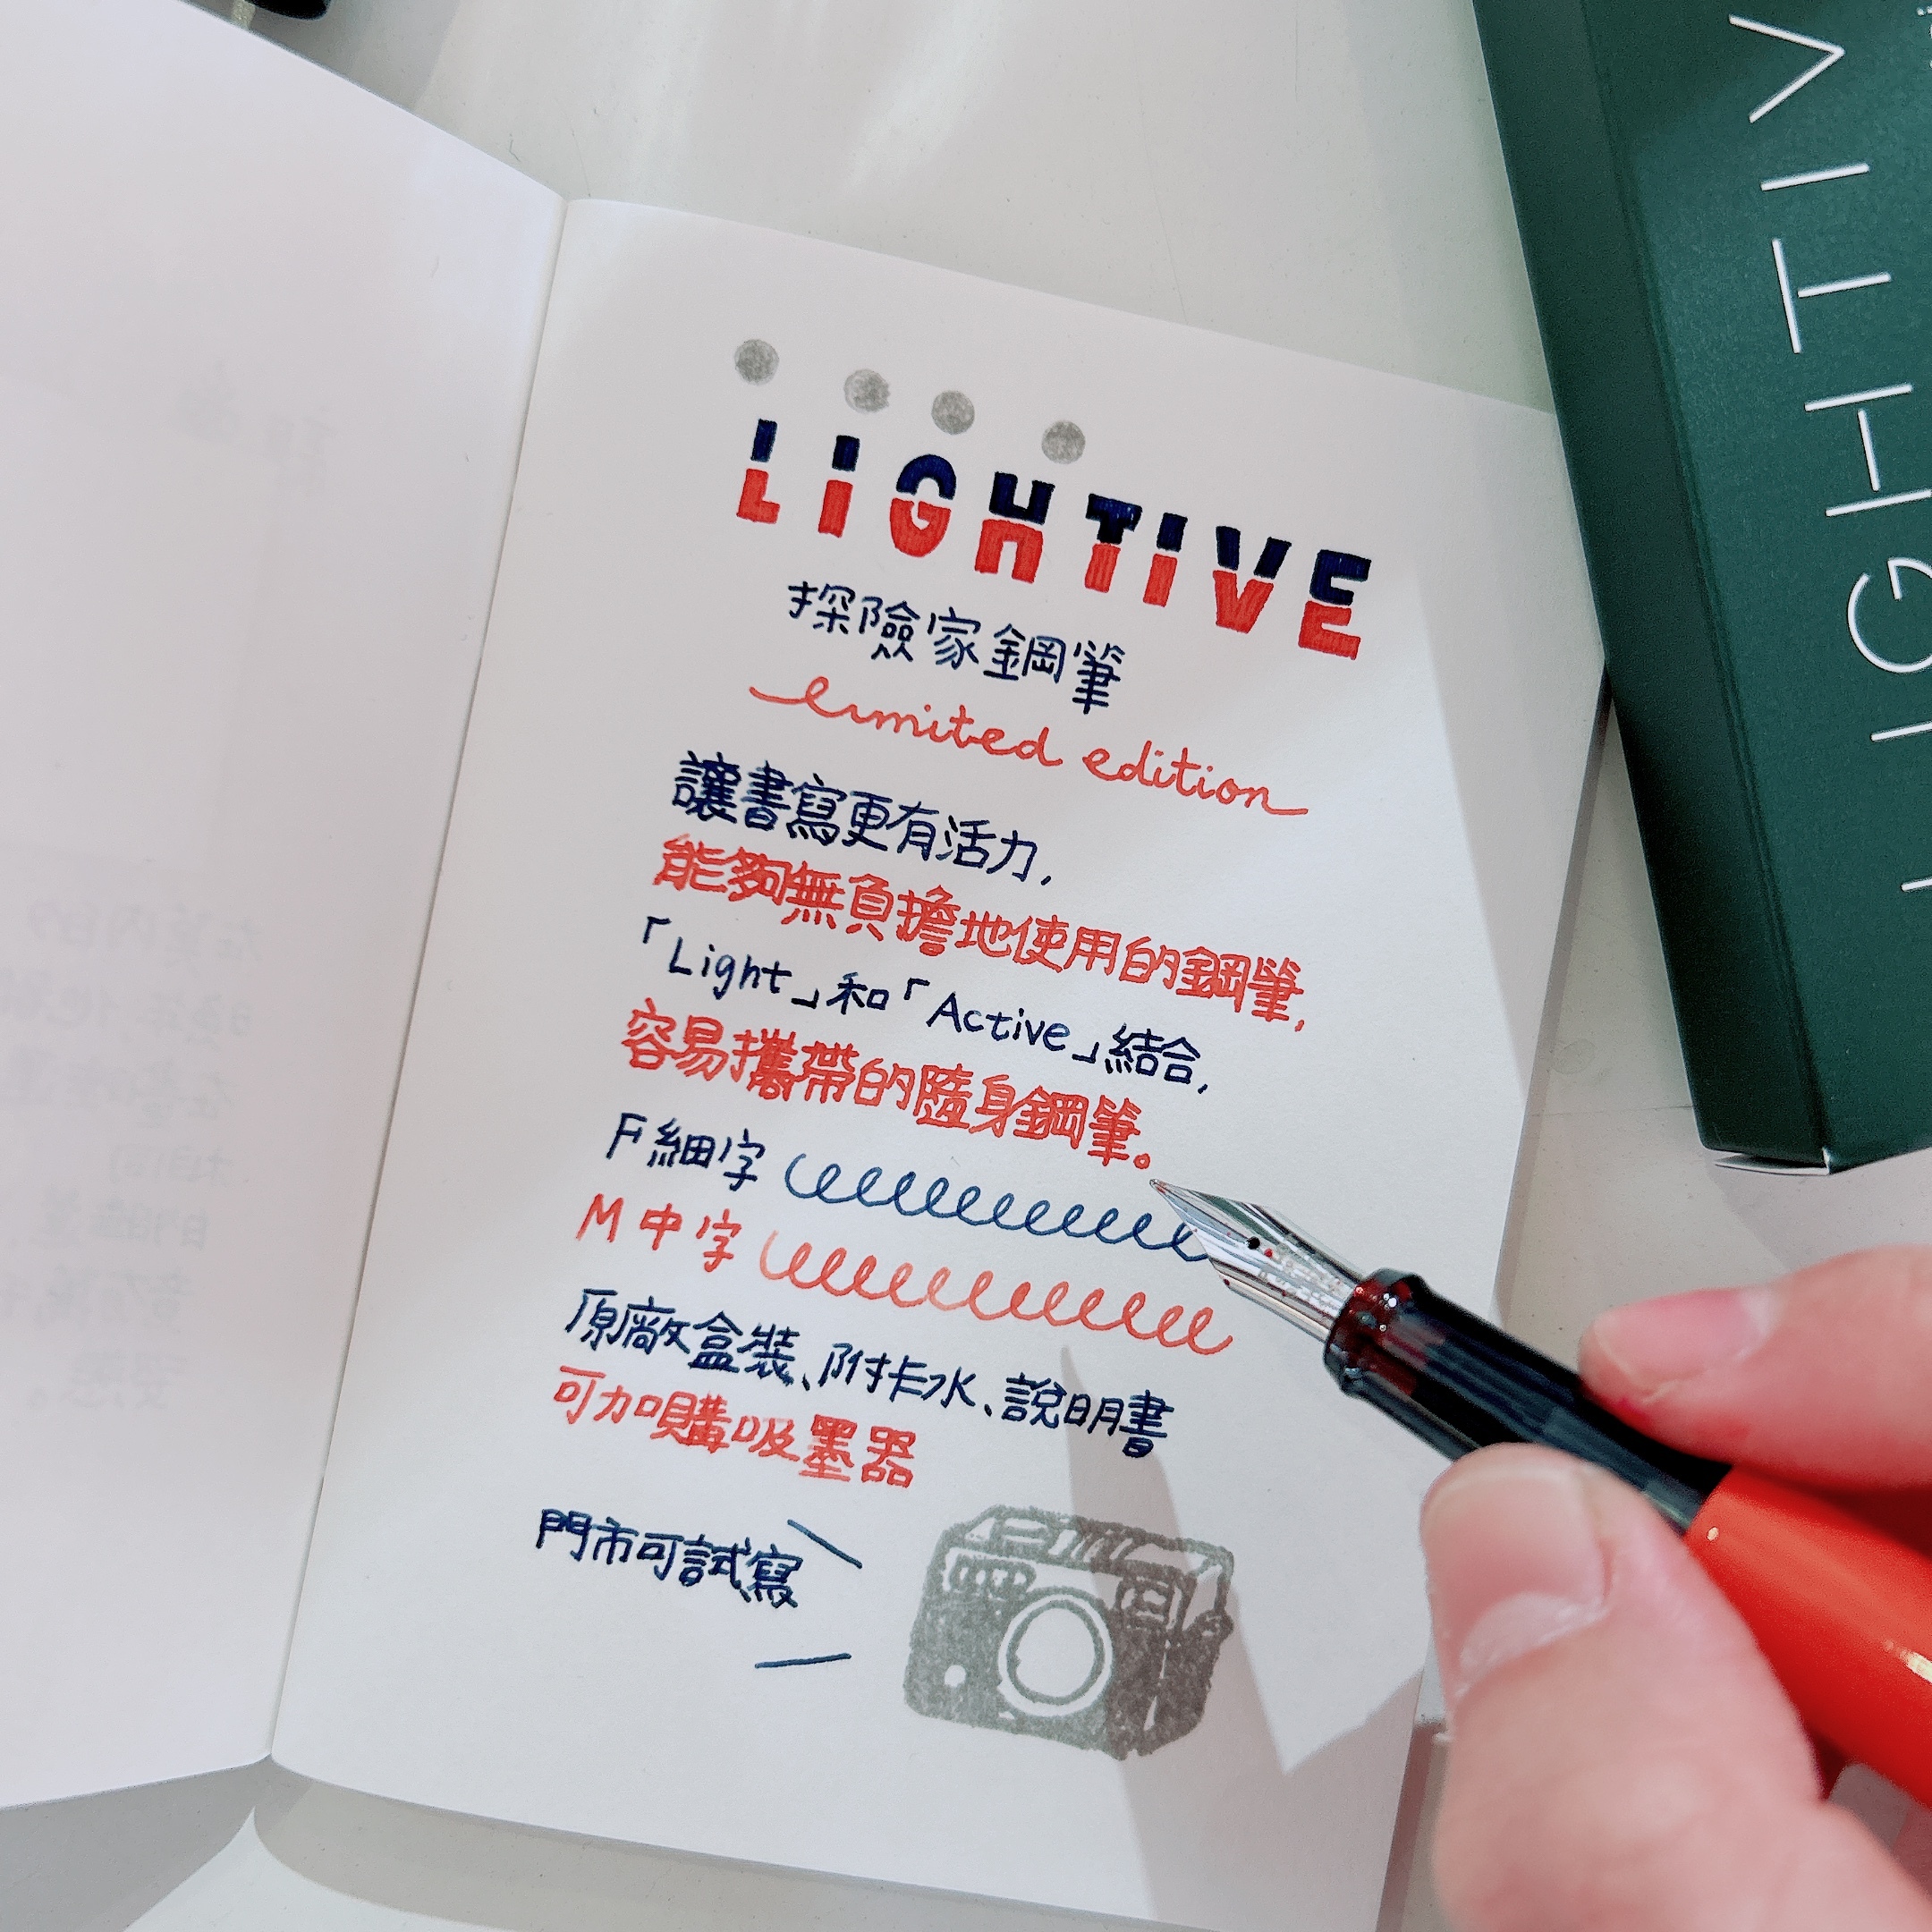 LIGHTIVE
探險家鋼筆
limited edition
讓書寫更有活力，
能夠無負擔地使用的鋼筆，
「Light」和「Active」結合，
容易攜帶的隨身鋼筆。
F 細字
M 中字
原廠盒裝、附卡水、說明書
可加購吸墨器
門市可試寫
LIGHTIV